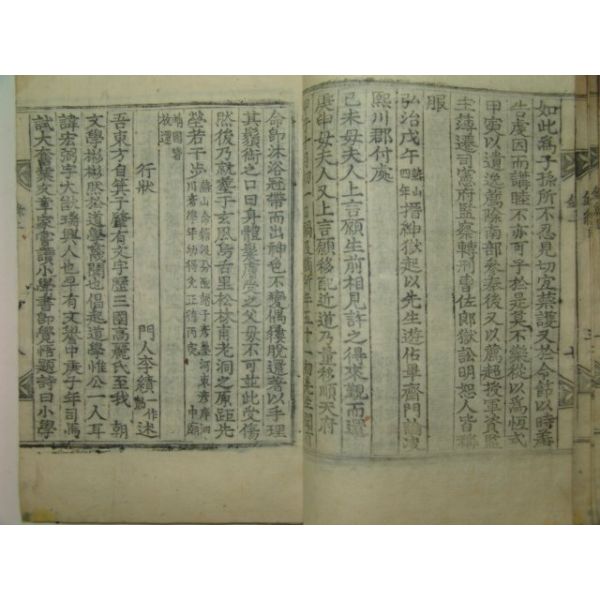 如此爲子孫所不忍見切宜禁護又於令節以時薦
亨處因而講睦不亦可乎於是莫不樂從以爲恒式
甲寅以遺逸薦除南部參奉後又以薦超授軍資監
主薄遷司憲府監察轉刑曹佐郎獄訟明恕人皆稱
服
弘治戊午燕山四年搢紳獄起以先生遊佔畢齋門論決
熙川郡付處
己未母夫人上言願生前相見許之得來覲而還
庚申母夫人又上言願移配近道乃量移順天府
命卽沐浴冠帶而出神色不變偶縷脫還著以手理
其鬚銜之口曰身體髮膚受之父母不可並此受傷
然後乃就葬于玄風烏舌里松林甫老洞之原距先
塋若干步
行狀
門人李績一作勣述
吾東方自箕子肇有文字歷三國高麗氏至我 朝
文學彬彬然於道學蔑聞也倡起道學惟公一人耳
諱宏弼字大猷瑞興人也早有文譽中庚子年司馬
試大奮業文章家嘗讀小學書卽覺悟題詩曰小學